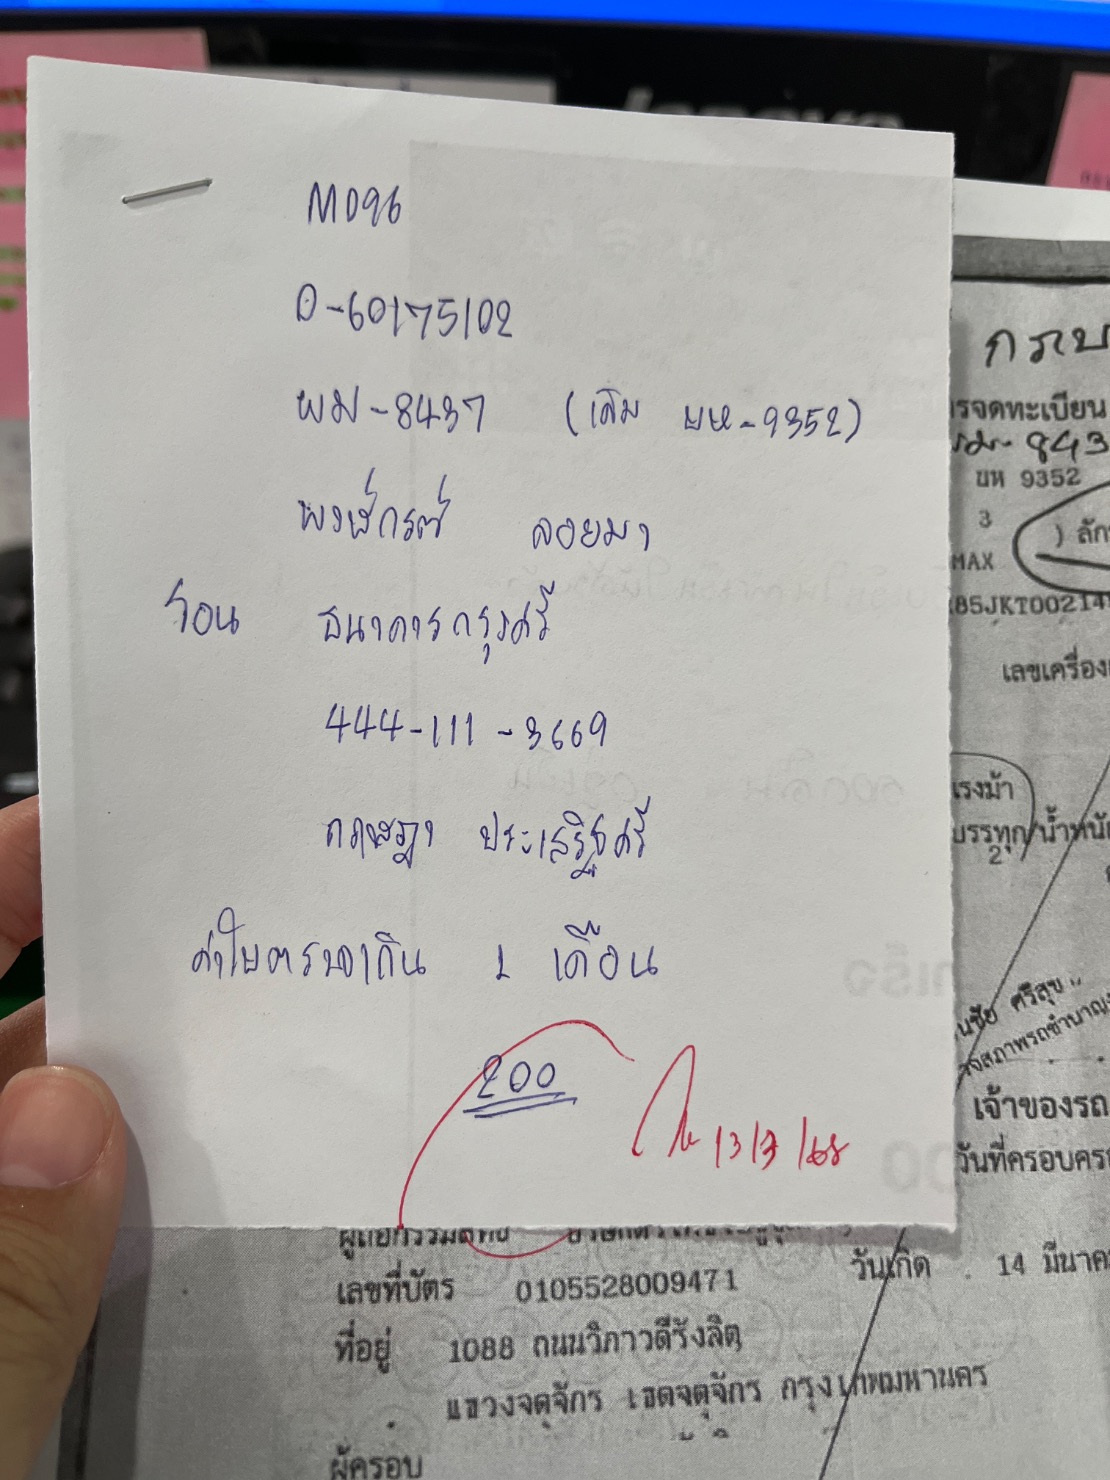 M096
D-60175102
พม-8437 (เดิม ยห-9352)
พงษ์กรณ์ ลอยมา
โอน ธนาคารกรุงศรี
444-111-3669
กฤษฎา ประเสริฐศรี
ค่าใบตรวจเกิน 1 เดือน
200
13/3/68
กระบ
รจดทะเบียน
843
ยห 9352
3
) ลัก
MAX
85JKT00214
เลขเครื่อง
แรงม้า
บรรทุก/น้ำหนัก
2
นชัย ศรีสุข
เจ้าของรถ
วันที่ครอบคร
เลขที่บัตร 0105528009471 วันเกิด 14 มีนาค
ที่อยู่ 1088 ถนนวิภาวดีรังสิต
แขวงจตุจักร เขตจตุจักร กรุงเทพมหานคร
ผู้ครอบ